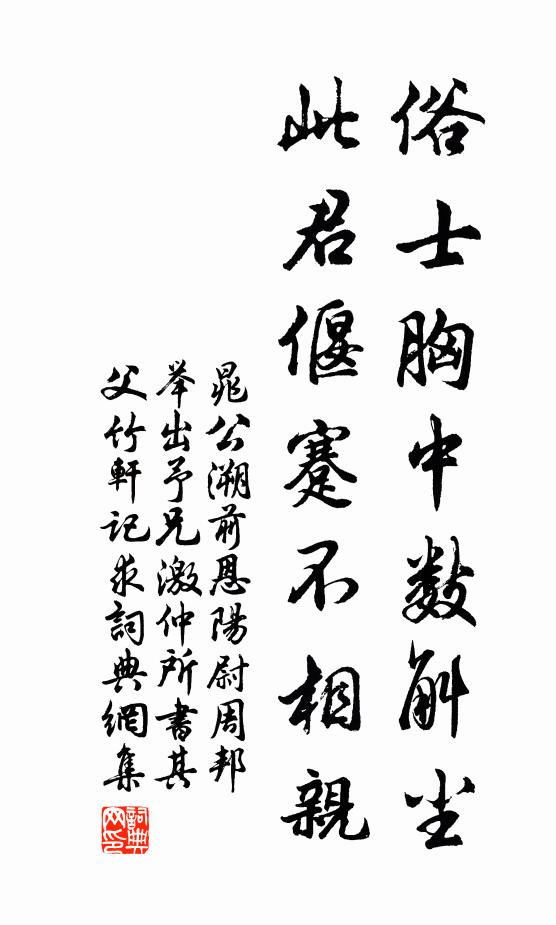 俗士胸中数斛尘
此君偃蹇不相親
晁公溯前恩陽尉周邦
举出予兄激仲所書其
父竹軒記求詞典網集
詞典
网印